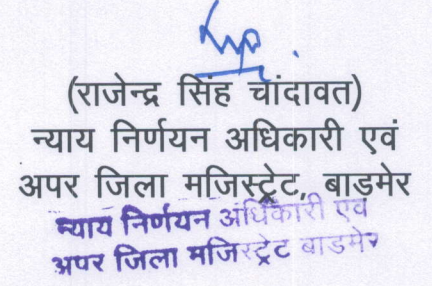 (राजेन्द्र सिंह चांदावत)
न्याय निर्णयन अधिकारी एवं
अपर जिला मजिस्ट्रेट, बाडमेर
न्याय निर्णयन अधिकारी एवं
अपर जिला मजिस्ट्रेट बाडमेर